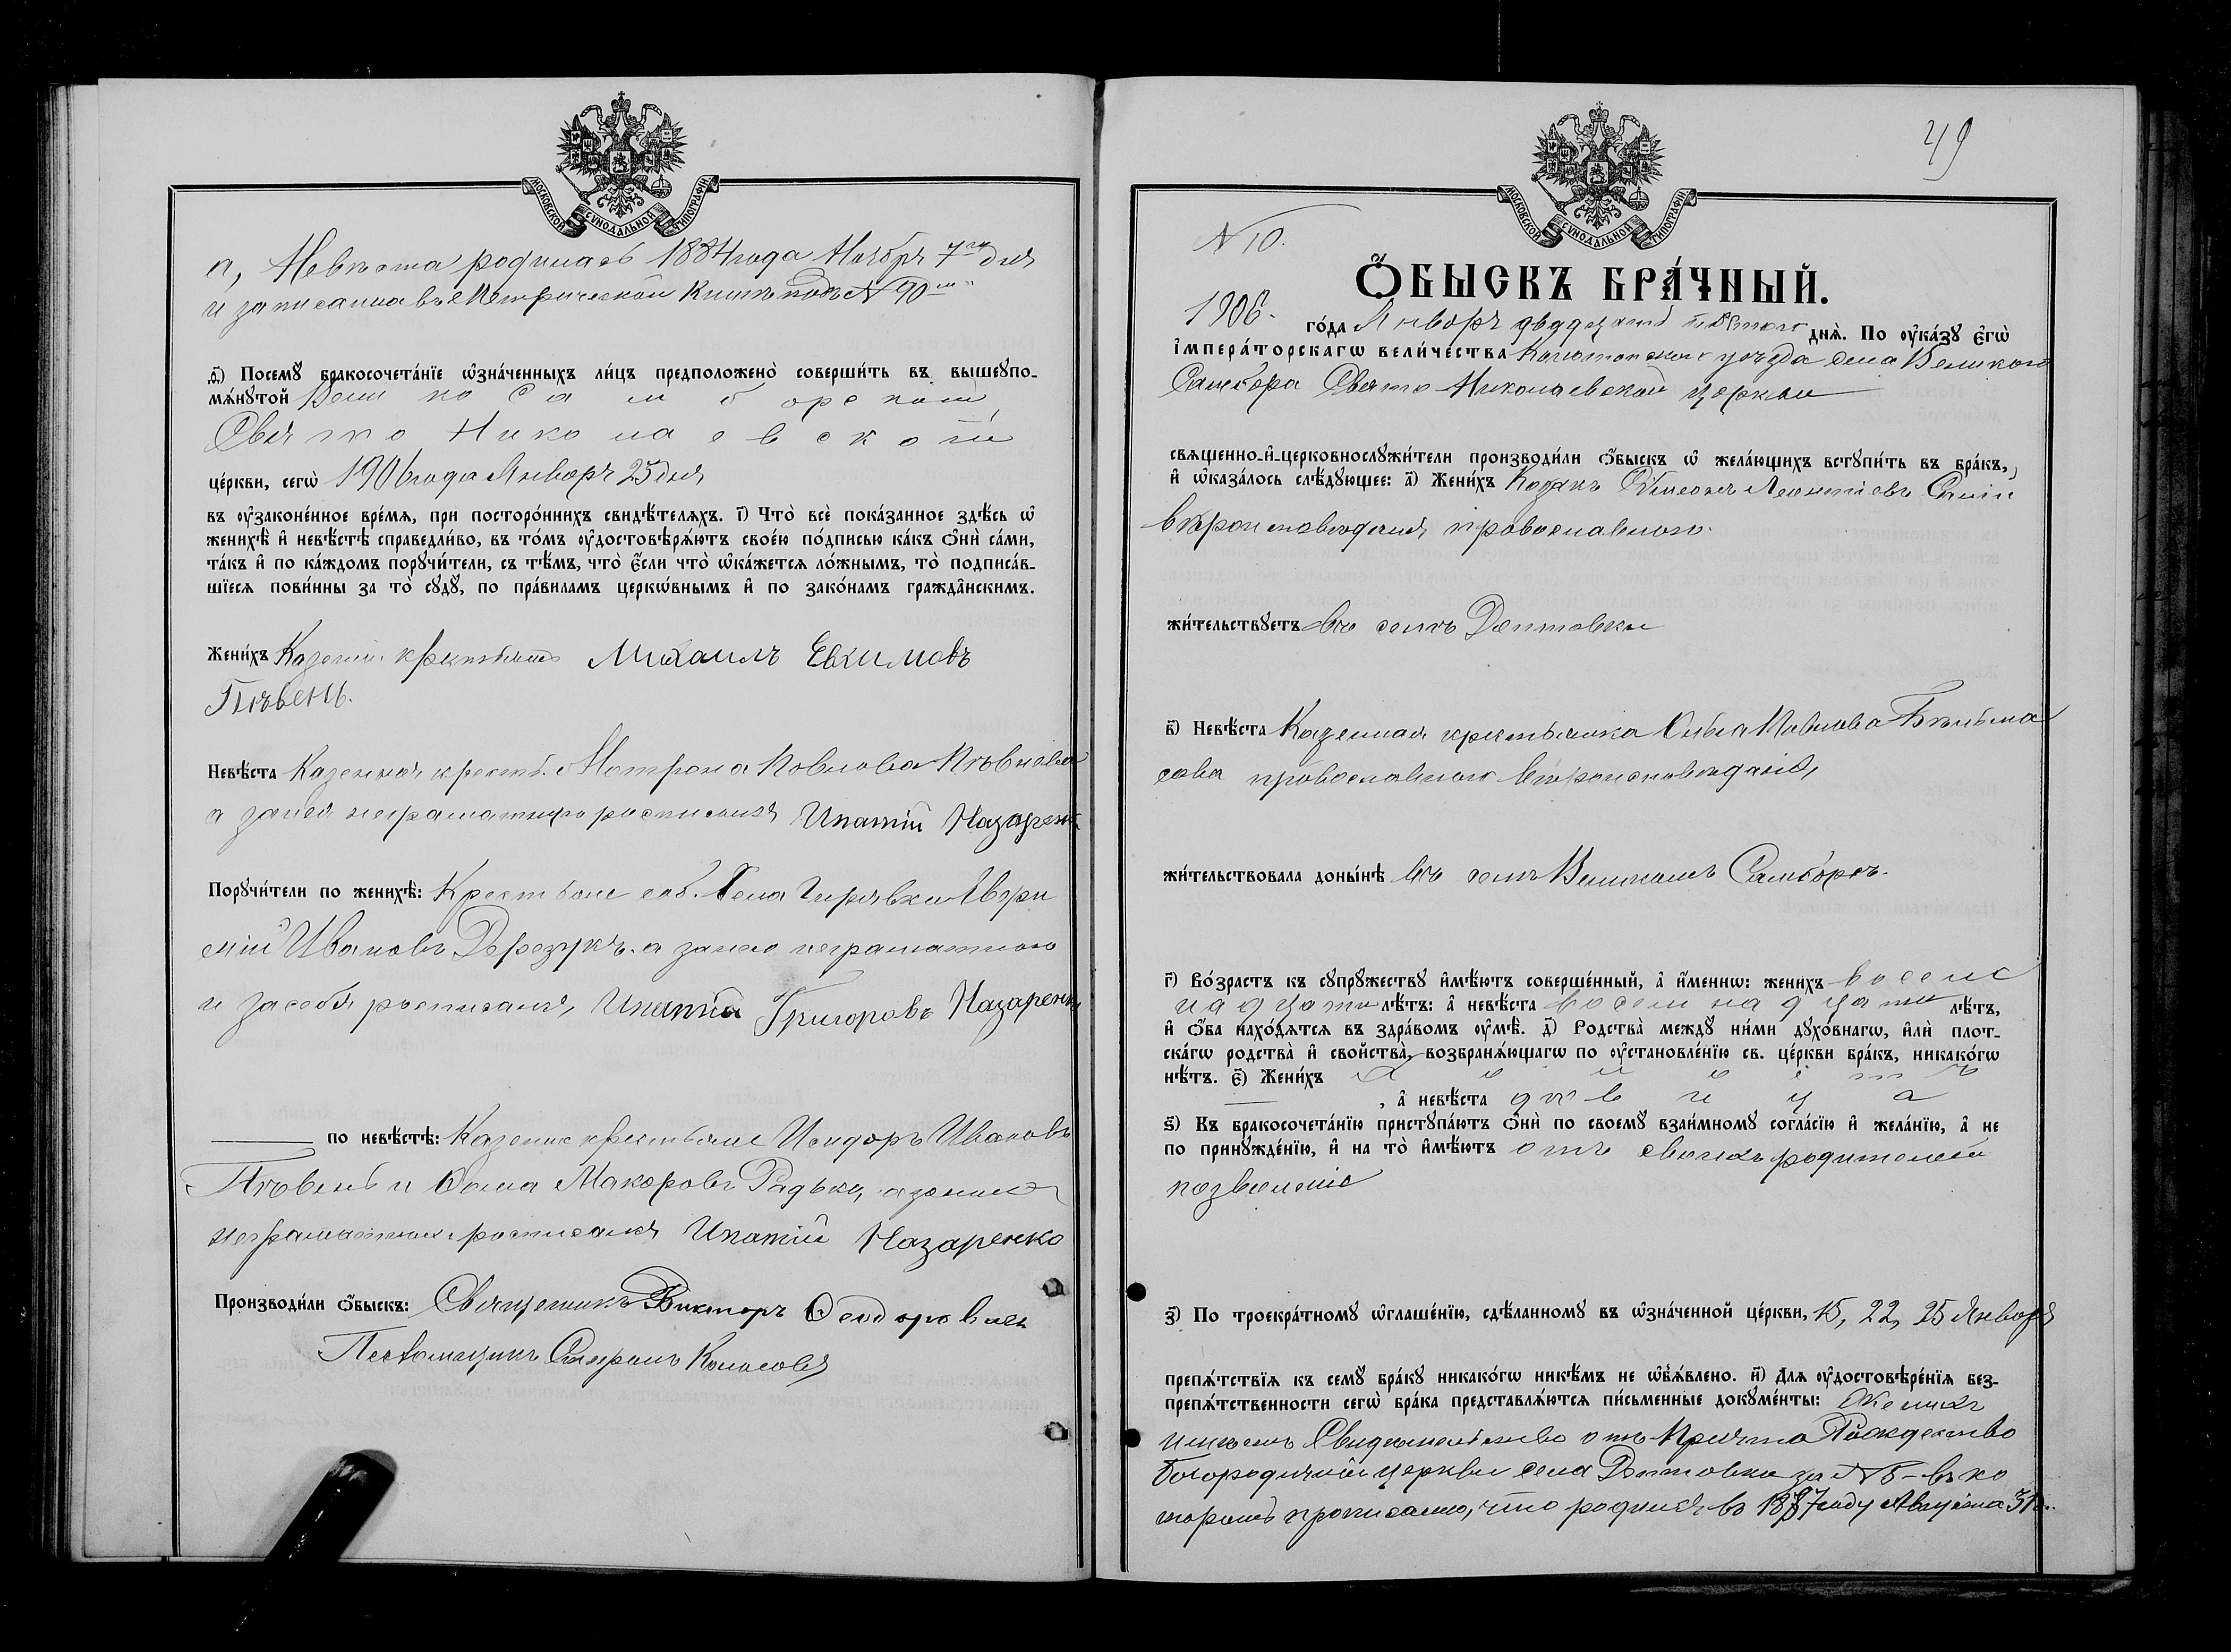 МОСКОВСКОЙ СУНОДАЛЬНОЙ ТИПОГРАФІИ
а, Невѣста родилась 1884 года Ноября 7го дня
и записанна въ Метрической Книгѣ подъ № 90мъ
ѳ҃) Посемꙋ̀ бракосочета́нїе ѡ҆зна́ченныхъ ли́цъ предположено̀ соверши́ть въ вышеꙋпо-
мѧ́нꙋтой Велико Самборской,
Свято Николаевской
це́ркви, сегѡ̀ 1906 года Января 25 дня
въ ᲂу҆зако́ненное вре́мѧ, при посторо́ннихъ свидѣ́телѧхъ. і҃) Что̀ всѐ пока́занное здѣ́сь ѡ҆
женихѣ̀ и҆ невѣ́стѣ справедли́во, въ то́мъ ᲂу҆достовѣрѧ́ютъ свое́ю по́дписью ка́къ ѻ҆нѝ са́ми,
та́къ и҆ по ка́ждомъ порꙋчи́тели, съ тѣ́мъ, что̀ є҆́сли что̀ ѡ҆ка́жетсѧ ло́жнымъ, то̀ подписа́в-
шїесѧ пови́нны за то̀ сꙋдꙋ̀, по пра́виламъ церко́внымъ и҆ по зако́намъ гражда̂нскимъ.
Жени́хъ Казенн. крестьянъ Михаилъ Евкимовъ
Пѣвень.
Невѣ́ста Казенная кресть. Матрона Павлова Пѣвнева
а за нея неграматную росписался Ипатій Назаренк
Порꙋчи́тели по женихѣ̀: Крестьяне соб. Села Гирявки Авра
мій Ивановъ Дерезукъ. а за него неграматного
и за себя росписался, Ипатій Григоровъ Назаренко
по невѣ́стѣ: Казенне крестьяне Исидоръ Ивановъ
Пѣвень и Ѳома Макаровъ Радько, а за них
неграматных росписался Ипатій Назаренко
Производи́ли ѻ҆́быскъ: Священникъ Викторъ Ѳеодоровичъ
Псаломщикъ
49
МОСКОВСКОЙ СУНОДАЛЬНОЙ ТИПОГРАФІИ
N 10.
Ѻ҆́БЫСКЪ БРА́ЧНЫЙ.
1906. го́да Января двадцать пятого днѧ̀. По ᲂу҆ка́зꙋ є҆гѡ̀
і҆мпера́торскагѡ вели́чества Конотопского уѣзда села Великого
Самбора Свято Николаевской церкви
свѧщенно-и҆-церковнослꙋжи́тели производи́ли ѻ҆́быскъ ѡ҆ жела́ющихъ встꙋпи́ть въ бра́къ,
и҆ ѡ҆каза́лось слѣ́дꙋющее: а҃) Жени́хъ Козакъ Симеонъ Леонтіевъ
вѣроисповѣданія православного.
жи́тельствꙋетъ въ селѣ Дептовки
в҃) Невѣ́ста Казенная крестьянка Павлова
сова православного вѣроисповѣданія,
жи́тельствовала донынѣ въ селѣ Великомъ Самборѣ.
г҃) Во́зрастъ къ сꙋпрꙋ́жествꙋ и҆мѣ́ютъ соверше́нный, а҆ и҆́менно: жени́хъ восем
надцати лѣ́тъ: а҆ невѣ́ста восемнадцати лѣ́тъ,
и҆ ѻ҆́ба нахо́дѧтсѧ въ здра́вомъ ᲂу҆мѣ̀. д҃) Родства̀ междꙋ̀ ни́ми дꙋхо́внагѡ, и҆лѝ плот-
ска́гѡ родства̀ и҆ сво́йства, возбранѧ́ющагѡ по ᲂу҆становле́нїю св. це́ркви бра́къ, никако́гѡ
нѣ́тъ. є҃) Жени́хъ
, а҆ невѣ́ста дѣвица
ѕ҃) Къ бракосочета́нїю пристꙋпа́ютъ ѻ҆нѝ по своемꙋ̀ взаи́мномꙋ согла́сїю и҆ жела́нїю, а҆ не
по принꙋжде́нїю, и҆ на то̀ и҆мѣ́ютъ отъ своихъ родителей
позволеніе
з҃) По троекра́тномꙋ ѡ҆глаше́нїю, сдѣ́ланномꙋ въ ѡ҆зна́ченной це́ркви, 15, 22, 25 Января
препѧ́тствїѧ къ семꙋ̀ бра́кꙋ никако́гѡ никѣ́мъ не ѡ҆б̾ѧ́влено. и҃) Длѧ ᲂу҆достовѣре́нїѧ без-
препѧ́тственности сегѡ̀ бра́ка представлѧ́ютсѧ пи́сьменные докꙋме́нты: Женихъ
имѣетъ Свидетельство отъ Причта Рождество
Богородичной церкви села Дептовка за № 5 – въ ко
торомъ прописано, что родился въ 1887 году Августа 31